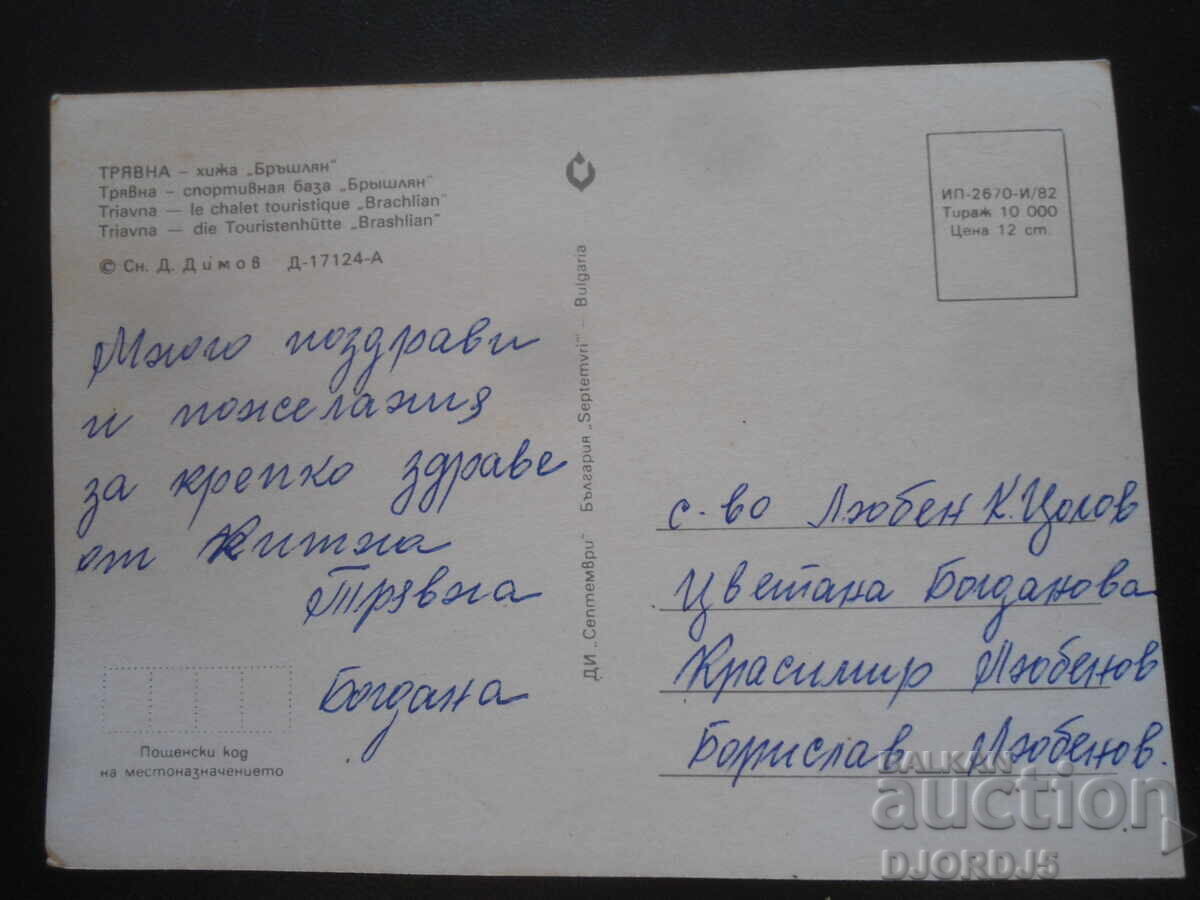 ТРЯВНА – хижа „Бръшлян"
Трявна – спортивная база „Брышлян"
Triavna — le chalet touristique „Brachlian"
Triavna — die Touristenhütte „Brashlian"
© Сн. Д. Димов Д-17124-А
Много поздрави
и пожелания
за крепко здраве
от Китна
Трявна
Богдана
Пощенски код
на местоназначението
ДИ „Септември" България „Septemvri" – Bulgaria
ИП-2670-И/82
Тираж 10 000
Цена 12 ст.
с-во Любен К. Цолов
Цветана Богданова
Красимир Любенов
Борислав Любенов.
BALKAN
auction
DJORDJ5